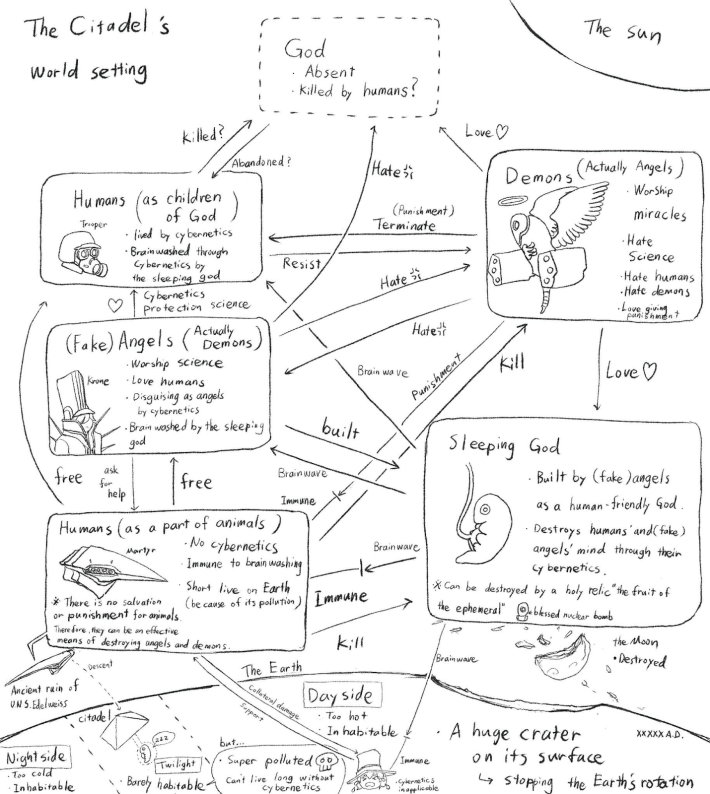 The Citadel's
world setting
The sun
God
・Absent
・Killed by humans?
Killed?
Abandoned?
Hate
Love♡
Humans (as children
of God)
Trooper
・lived by cybernetics
・Brainwashed through
Cybernetics by
the sleeping god
(Punishment)
Terminate
Resist
Demons (Actually Angels)
・Worship
miracles
・Hate
Science
・Hate humans
・Hate demons
・Love giving
punishment
♡
Cybernetics
protection science
Hate
Hate
(Fake) Angels (Actually
Demons)
・Worship science
・Love humans
・Disguising as angels
by cybernetics
・Brain washed by the sleeping
god
Krone
Brain wave
Punishment
Kill
Love♡
built
Brainwave
Immune
free
ask
for
help
free
Sleeping God
・Built by (fake) angels
as a human-friendly God.
・Destroys humans' and (fake)
angels' mind through their
cybernetics.
※ Can be destroyed by a holy relic "the fruit of
the ephemeral"
=blessed nuclear bomb
Humans (as a part of animals)
Martyr
・No cybernetics
・Immune to brainwashing
・Short live on Earth
(because of its pollution)
※ There is no salvation
or punishment for animals.
Therefore, they can be an effective
means of destroying angels and demons.
Brainwave
Immune
Kill
the Moon
・Destroyed
Brainwave
Descent
Ancient ruin of
U.N.S. Edelweiss
The Earth
Collateral damage
Support
citadel
zzz
Twilight
・Barely habitable
Night side
・Too cold
・Inhabitable
Day side
・Too hot
・Inhabitable
but...
・Super polluted
Can't live long without
cybernetics
Immune
・Cybernetics
inapplicable
・A huge crater
on its surface
↳ stopping the Earth's rotation
XXXXX A.D.